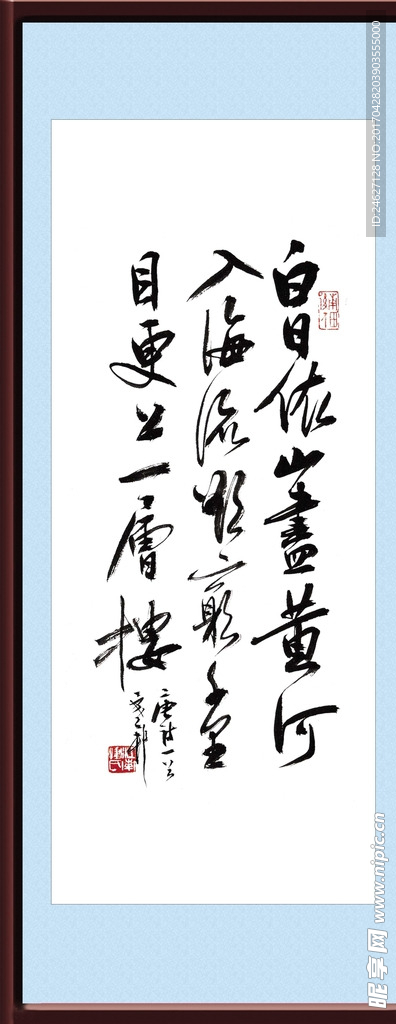 白日依山盡黄河
入海流欲窮千里
目更上一層樓
唐诗一首
ID:24627128 NO:20170428203903555000
昵享网 www.nipic.cn